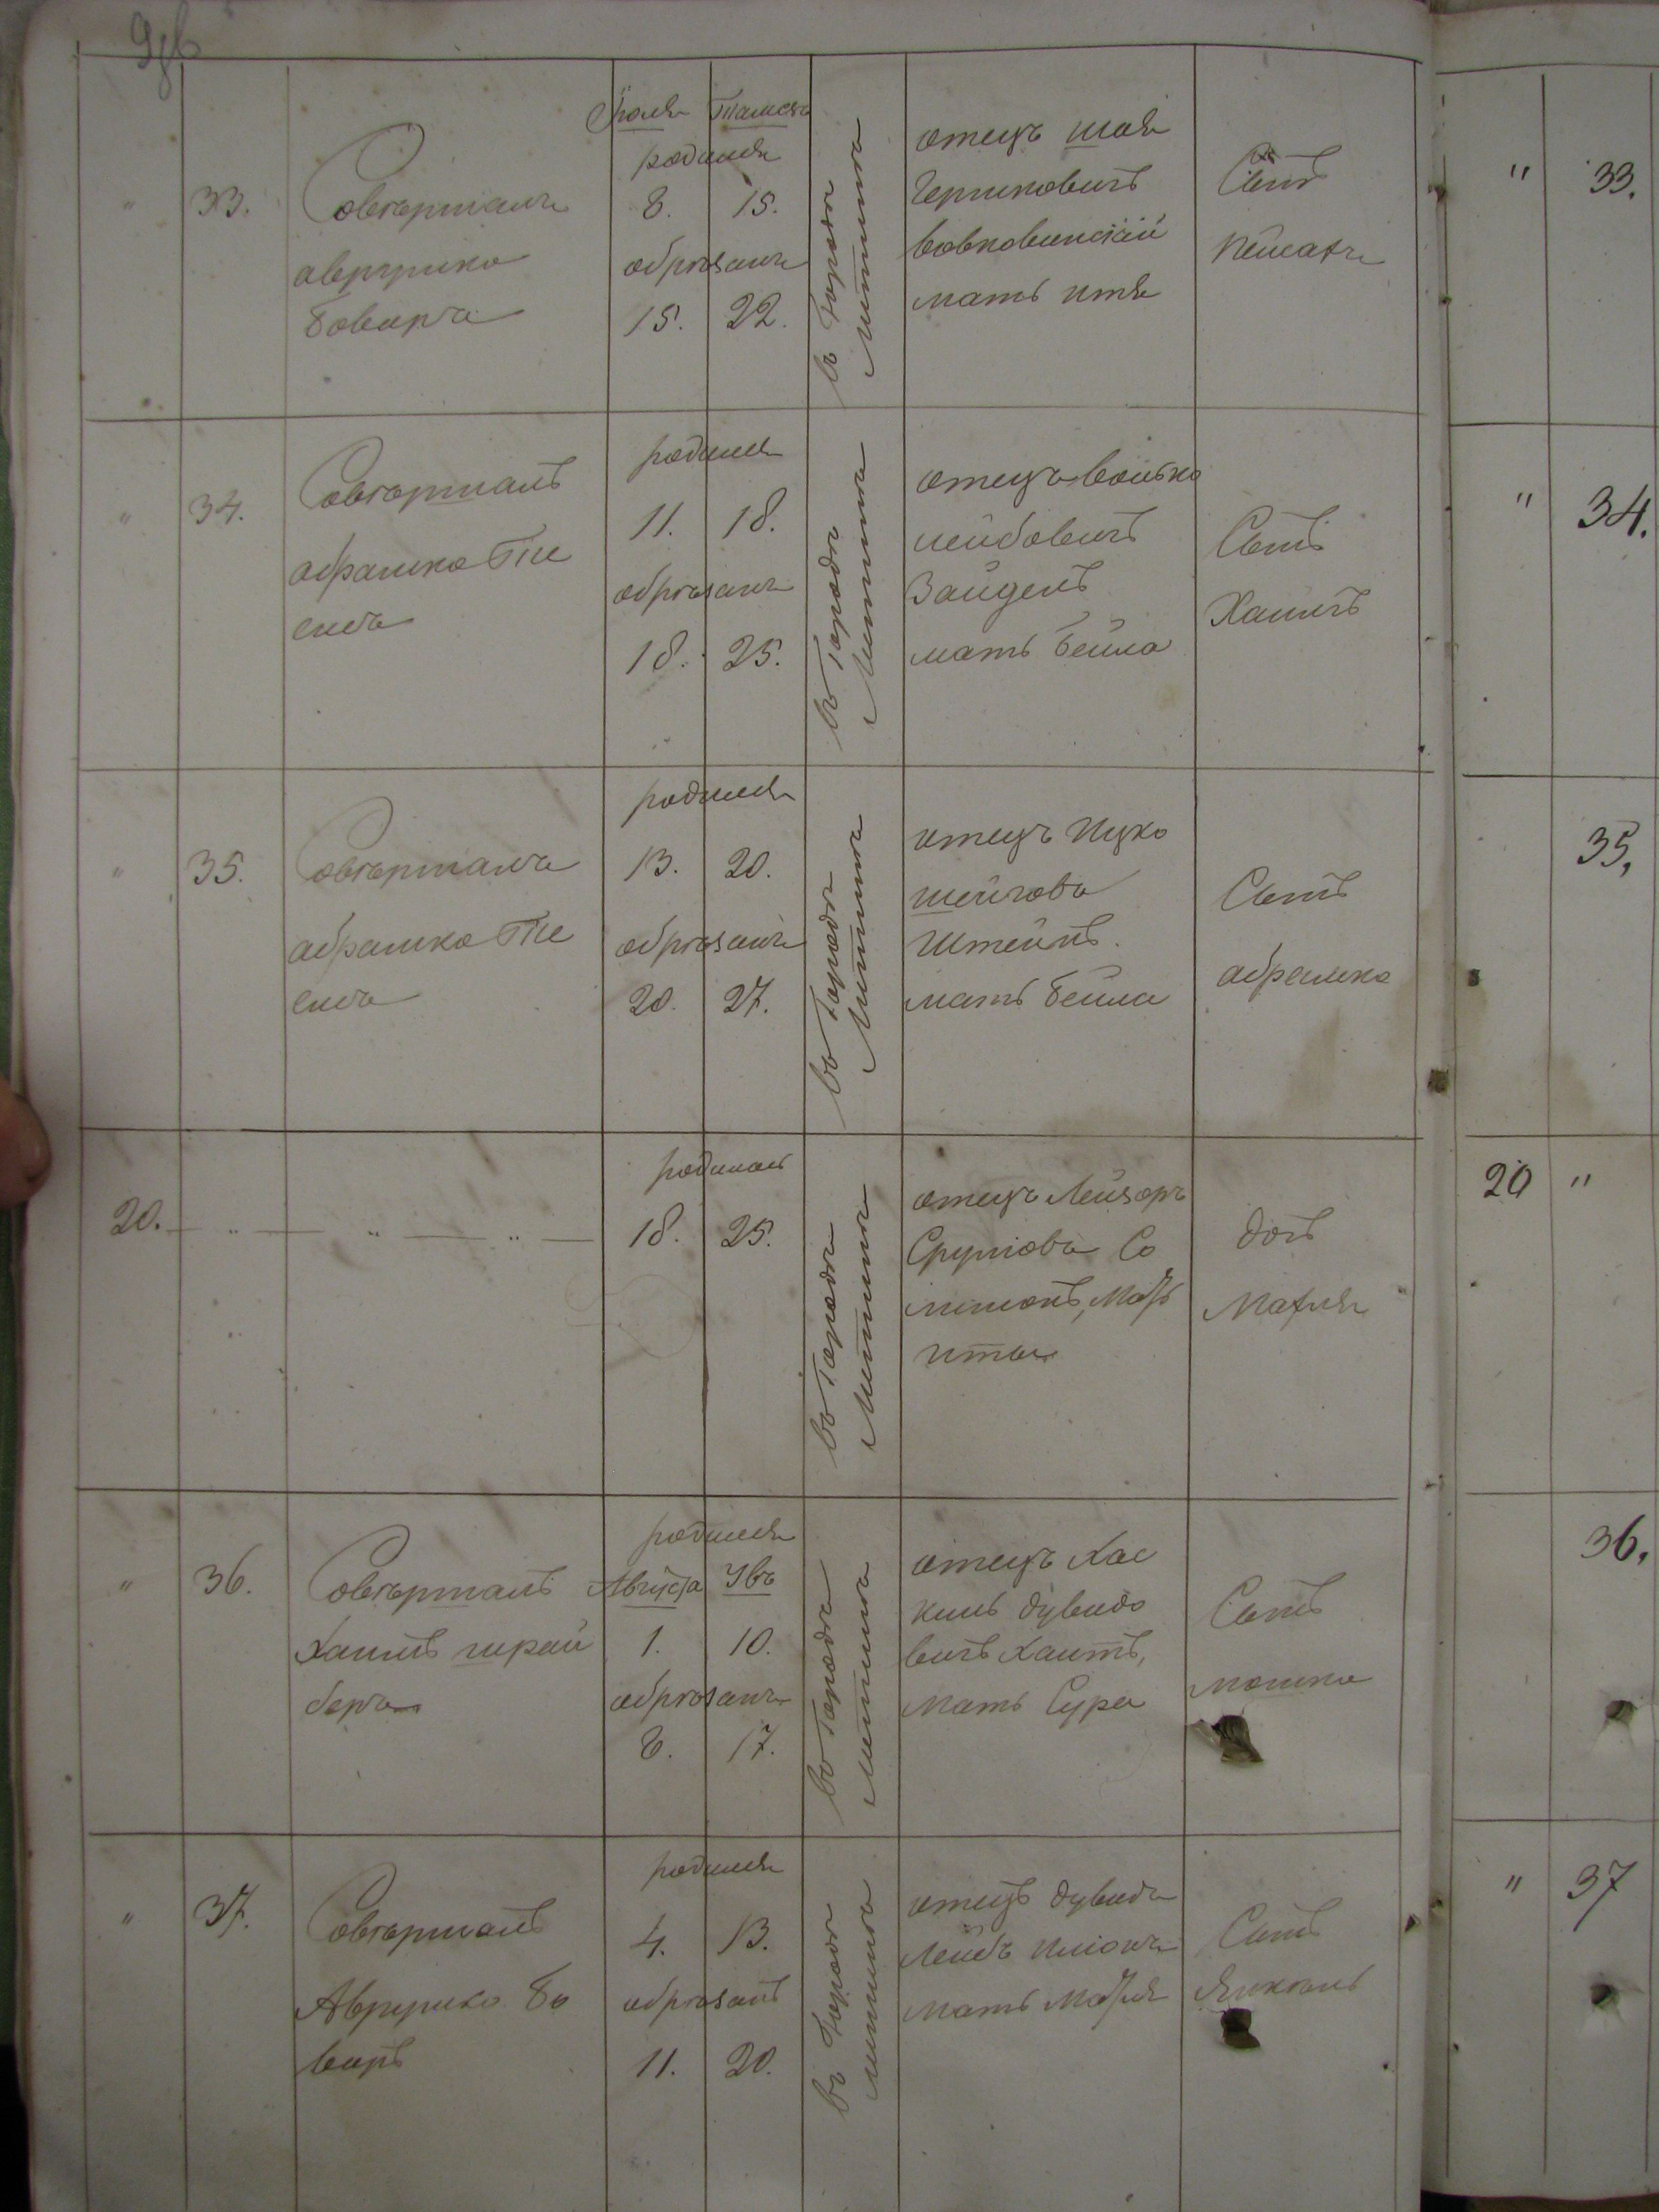 33.
Совершалъ
аврумко
боваръ
Іюля Тамеза
родился
8. 15.
обрѣзанъ
15. 22.
въ Городѣ
Литинѣ
отецъ шая
Гершковичъ
вовковинскій
мать итя
Сынъ
Пейсахъ
" 33.
" 34.
Совершалъ
абрамко
родился
11. 18.
обрѣзанъ
18. 25.
въ Городѣ
Литинѣ
отецъ волько
лейбовичъ
Зайделъ
мать бейла
Сынъ
Хаимъ
" 34.
" 35.
Совершалъ
абрамко
родился
13. 20.
обрѣзанъ
20. 27.
въ Городѣ
Литинѣ
отецъ Ицко
Штейнъ.
мать бейла
Сынъ
абрамко
35.
20. " " "
родилась
18. 25.
въ Городѣ
Литинѣ
отецъ Лейзоръ
Сруловъ
мать
иты
дочь
Махля
20 "
" 36.
Совершалъ
Хаимъ
родился
Августа
1. 10.
обрѣзанъ
8. 17.
въ Городѣ
Литинѣ
отецъ Хас
киль дувидо
вичъ Хаитъ,
Мать Сура
Сынъ
мошко
36.
" 37.
Совершалъ
Аврумко бо
варъ
родился
4. 13.
обрѣзанъ
11. 20.
въ Городѣ
литинѣ
отецъ дувидъ
Лейбъ
мать Махля
Сынъ
Янкель
" 37